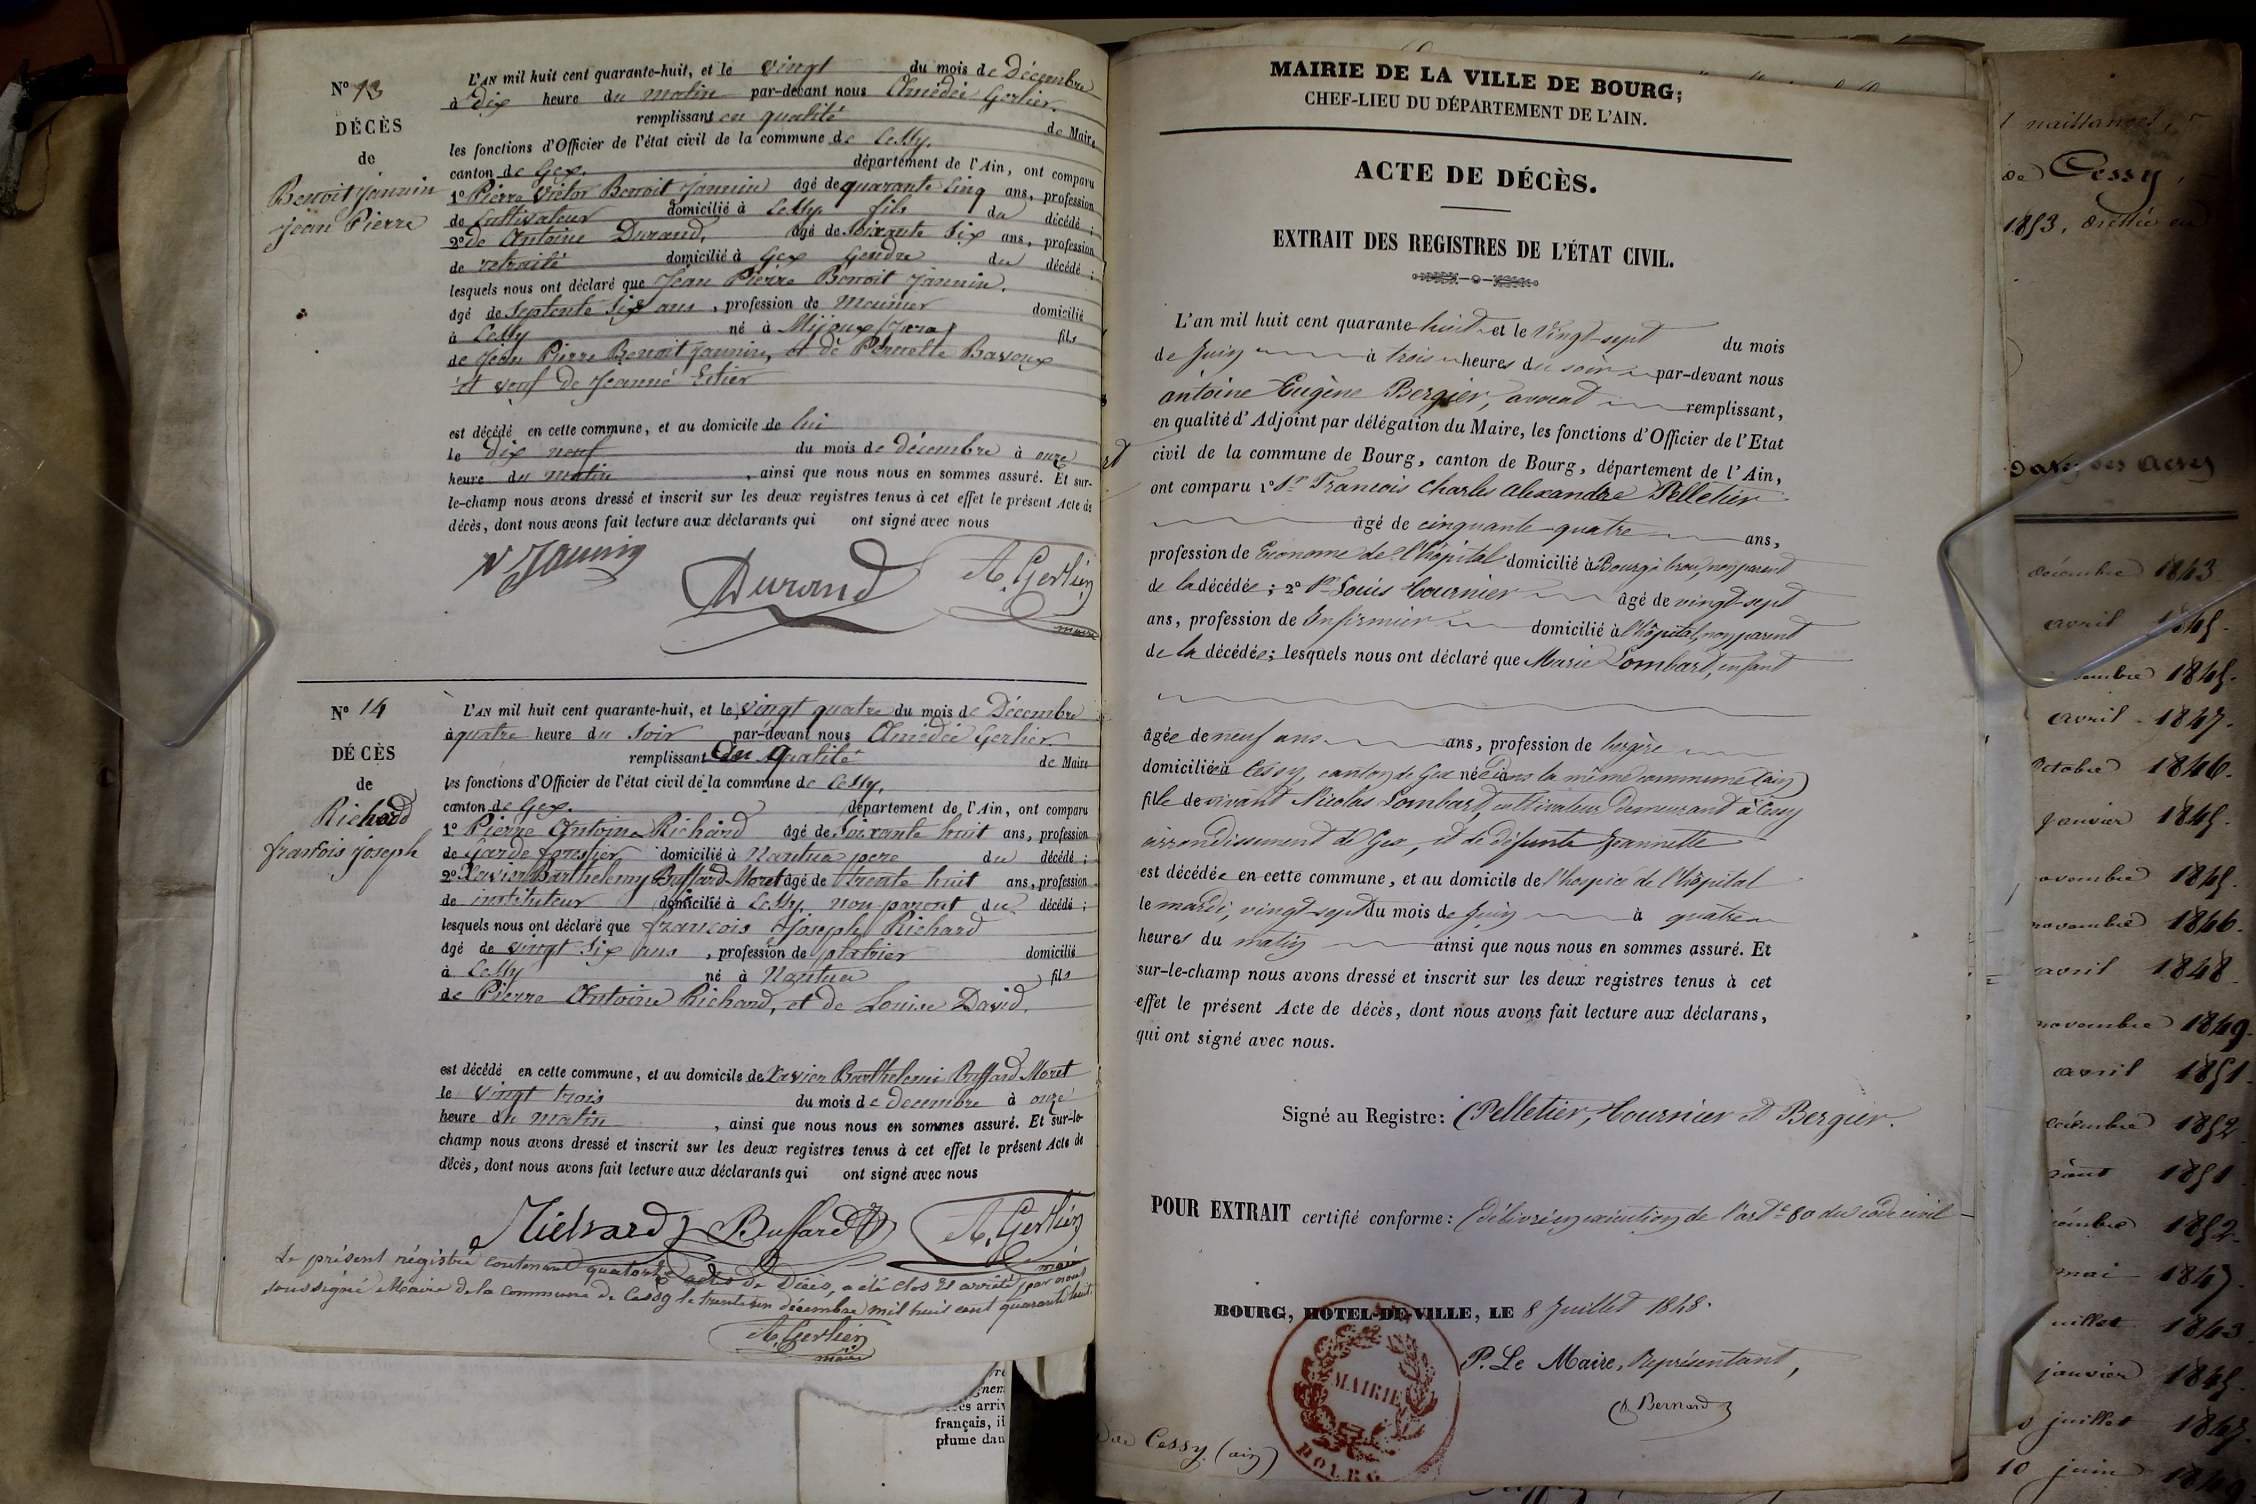 N° 13
DÉCÈS
de
Benoit Jannin
Jean Pierre
L'AN mil huit cent quarante-huit, et le vingt du mois de décembre
à dix heure du matin par-devant nous Amédée Gerlier
remplissant en qualité de Maire
les fonctions d'Officier de l'état civil de la commune de Cessy,
canton de Gex. département de l'Ain, ont comparu
1° Pierre Victor Benoit Jannin âgé de quarante cinq ans, profession
de Cultivateur domicilié à Cessy fils du décédé ;
2° de Antoine Durand, âgé de soixante six ans, profession
de retraité domicilié à Gex Gendre du décédé ;
lesquels nous ont déclaré que Jean Pierre Benoit Jannin.
âgé de septente six ans , profession de meunier domicilié
à Cessy né à Mijoux (Jura) fils
de Jean Pierre Benoit Jannin, et de Pernette Bavoux
et veuf de Jeanne Estier
est décédé en cette commune, et au domicile de lui
le dix neuf du mois de décembre à onze
heure du matin , ainsi que nous nous en sommes assuré. Et sur-
le-champ nous avons dressé et inscrit sur les deux registres tenus à cet effet le présent Acte de
décès, dont nous avons fait lecture aux déclarants qui ont signé avec nous
V Jannin Durand A. Gerlier
maire
N° 14
DÉCÈS
de
Richard
francois joseph
L'AN mil huit cent quarante-huit, et le vingt quatre du mois de Décembre
à quatre heure du soir par-devant nous Amédée Gerlier
remplissant en qualité de Maire
les fonctions d'Officier de l'état civil de la commune de Cessy,
canton de Gex. département de l'Ain, ont comparu
1° Pierre Antoine Richard âgé de soixante huit ans, profession
de Garde forestier domicilié à Nantua pere du décédé ;
2° Xavier Barthelemy Buffard Moret âgé de trente huit ans, profession
de instituteur domicilié à Cessy, non parent du décédé ;
lesquels nous ont déclaré que francois Joseph Richard
âgé de vingt six ans , profession de platrier domicilié
à Cessy né à Nantua fils
de Pierre Antoine Richard, et de Louise David.
est décédé en cette commune, et au domicile de Xavier Barthelemi Buffard Moret
le vingt trois du mois de decembre à onze
heure du matin , ainsi que nous nous en sommes assuré. Et sur-le-
champ nous avons dressé et inscrit sur les deux registres tenus à cet effet le présent Acte de
décès, dont nous avons fait lecture aux déclarants qui ont signé avec nous
Richard Buffard A. Gerlier
maire
Le présent régistre contenant quatorze actes de Décès, a été clos et arrêté par nous
soussigné Maire de la commune de Cessy le trente un décembre mil huit cent quarante huit.
A. Gerlier
maire
arriv
français, il
plume dan
MAIRIE DE LA VILLE DE BOURG;
CHEF-LIEU DU DÉPARTEMENT DE L'AIN.
ACTE DE DÉCÈS.
EXTRAIT DES REGISTRES DE L'ÉTAT CIVIL.
L'an mil huit cent quarante huit et le vingt-sept du mois
de Juin à trois heures du soir par-devant nous
antoine Eugène Bergier, avocat remplissant,
en qualité d'Adjoint par délégation du Maire, les fonctions d'Officier de l'Etat
civil de la commune de Bourg, canton de Bourg, département de l'Ain,
ont comparu 1° Sr Francois Charles Alexandre Pelletier
âgé de cinquante-quatre ans,
profession de Econome de l'hôpital domicilié à Bourg à brou, non parent
de la décédée ; 2° Sr Louis Tournier âgé de vingt-sept
ans, profession de Infirmier domicilié à l'hôpital, non parent
de la décédée ; lesquels nous ont déclaré que Marie Lombard, enfant
âgée de neuf ans ans, profession de bergère
domiciliée à Cessy, canton de Gex née dans la même commune (ain)
fille de vivant Nicolas Lombard, cultivateur Demeurant à Cessy
arrondissement de Gex, et de défunte Jeannette
est décédée en cette commune, et au domicile de l'hospice de l'hôpital
le mardi, vingt-sept du mois de Juin à quatre
heures du matin ainsi que nous nous en sommes assuré. Et
sur-le-champ nous avons dressé et inscrit sur les deux registres tenus à cet
effet le présent Acte de décès, dont nous avons fait lecture aux déclarans,
qui ont signé avec nous.
Signé au Registre: Pelletier, Tournier et Bergier.
POUR EXTRAIT certifié conforme: délivré en exécution de l'art. 80 du code civil
BOURG, HOTEL-DE-VILLE, LE 8 Juillet 1848.
P. Le Maire, Représentant,
Bernard
MAIRIE
BOURG
de Cessy (ain)
naissances,
de Cessy,
1853, dressée en
Date des actes
décembre 1843
avril 1845.
1845.
avril 1847.
octobre 1846.
janvier 1845.
novembre 1845.
novembre 1846.
avril 1848
novembre 1849.
avril 1851.
décembre 1852
1851
1852.
mai 1847.
juillet 1843
janvier 1845.
juillet 1847.
10 juin 1849